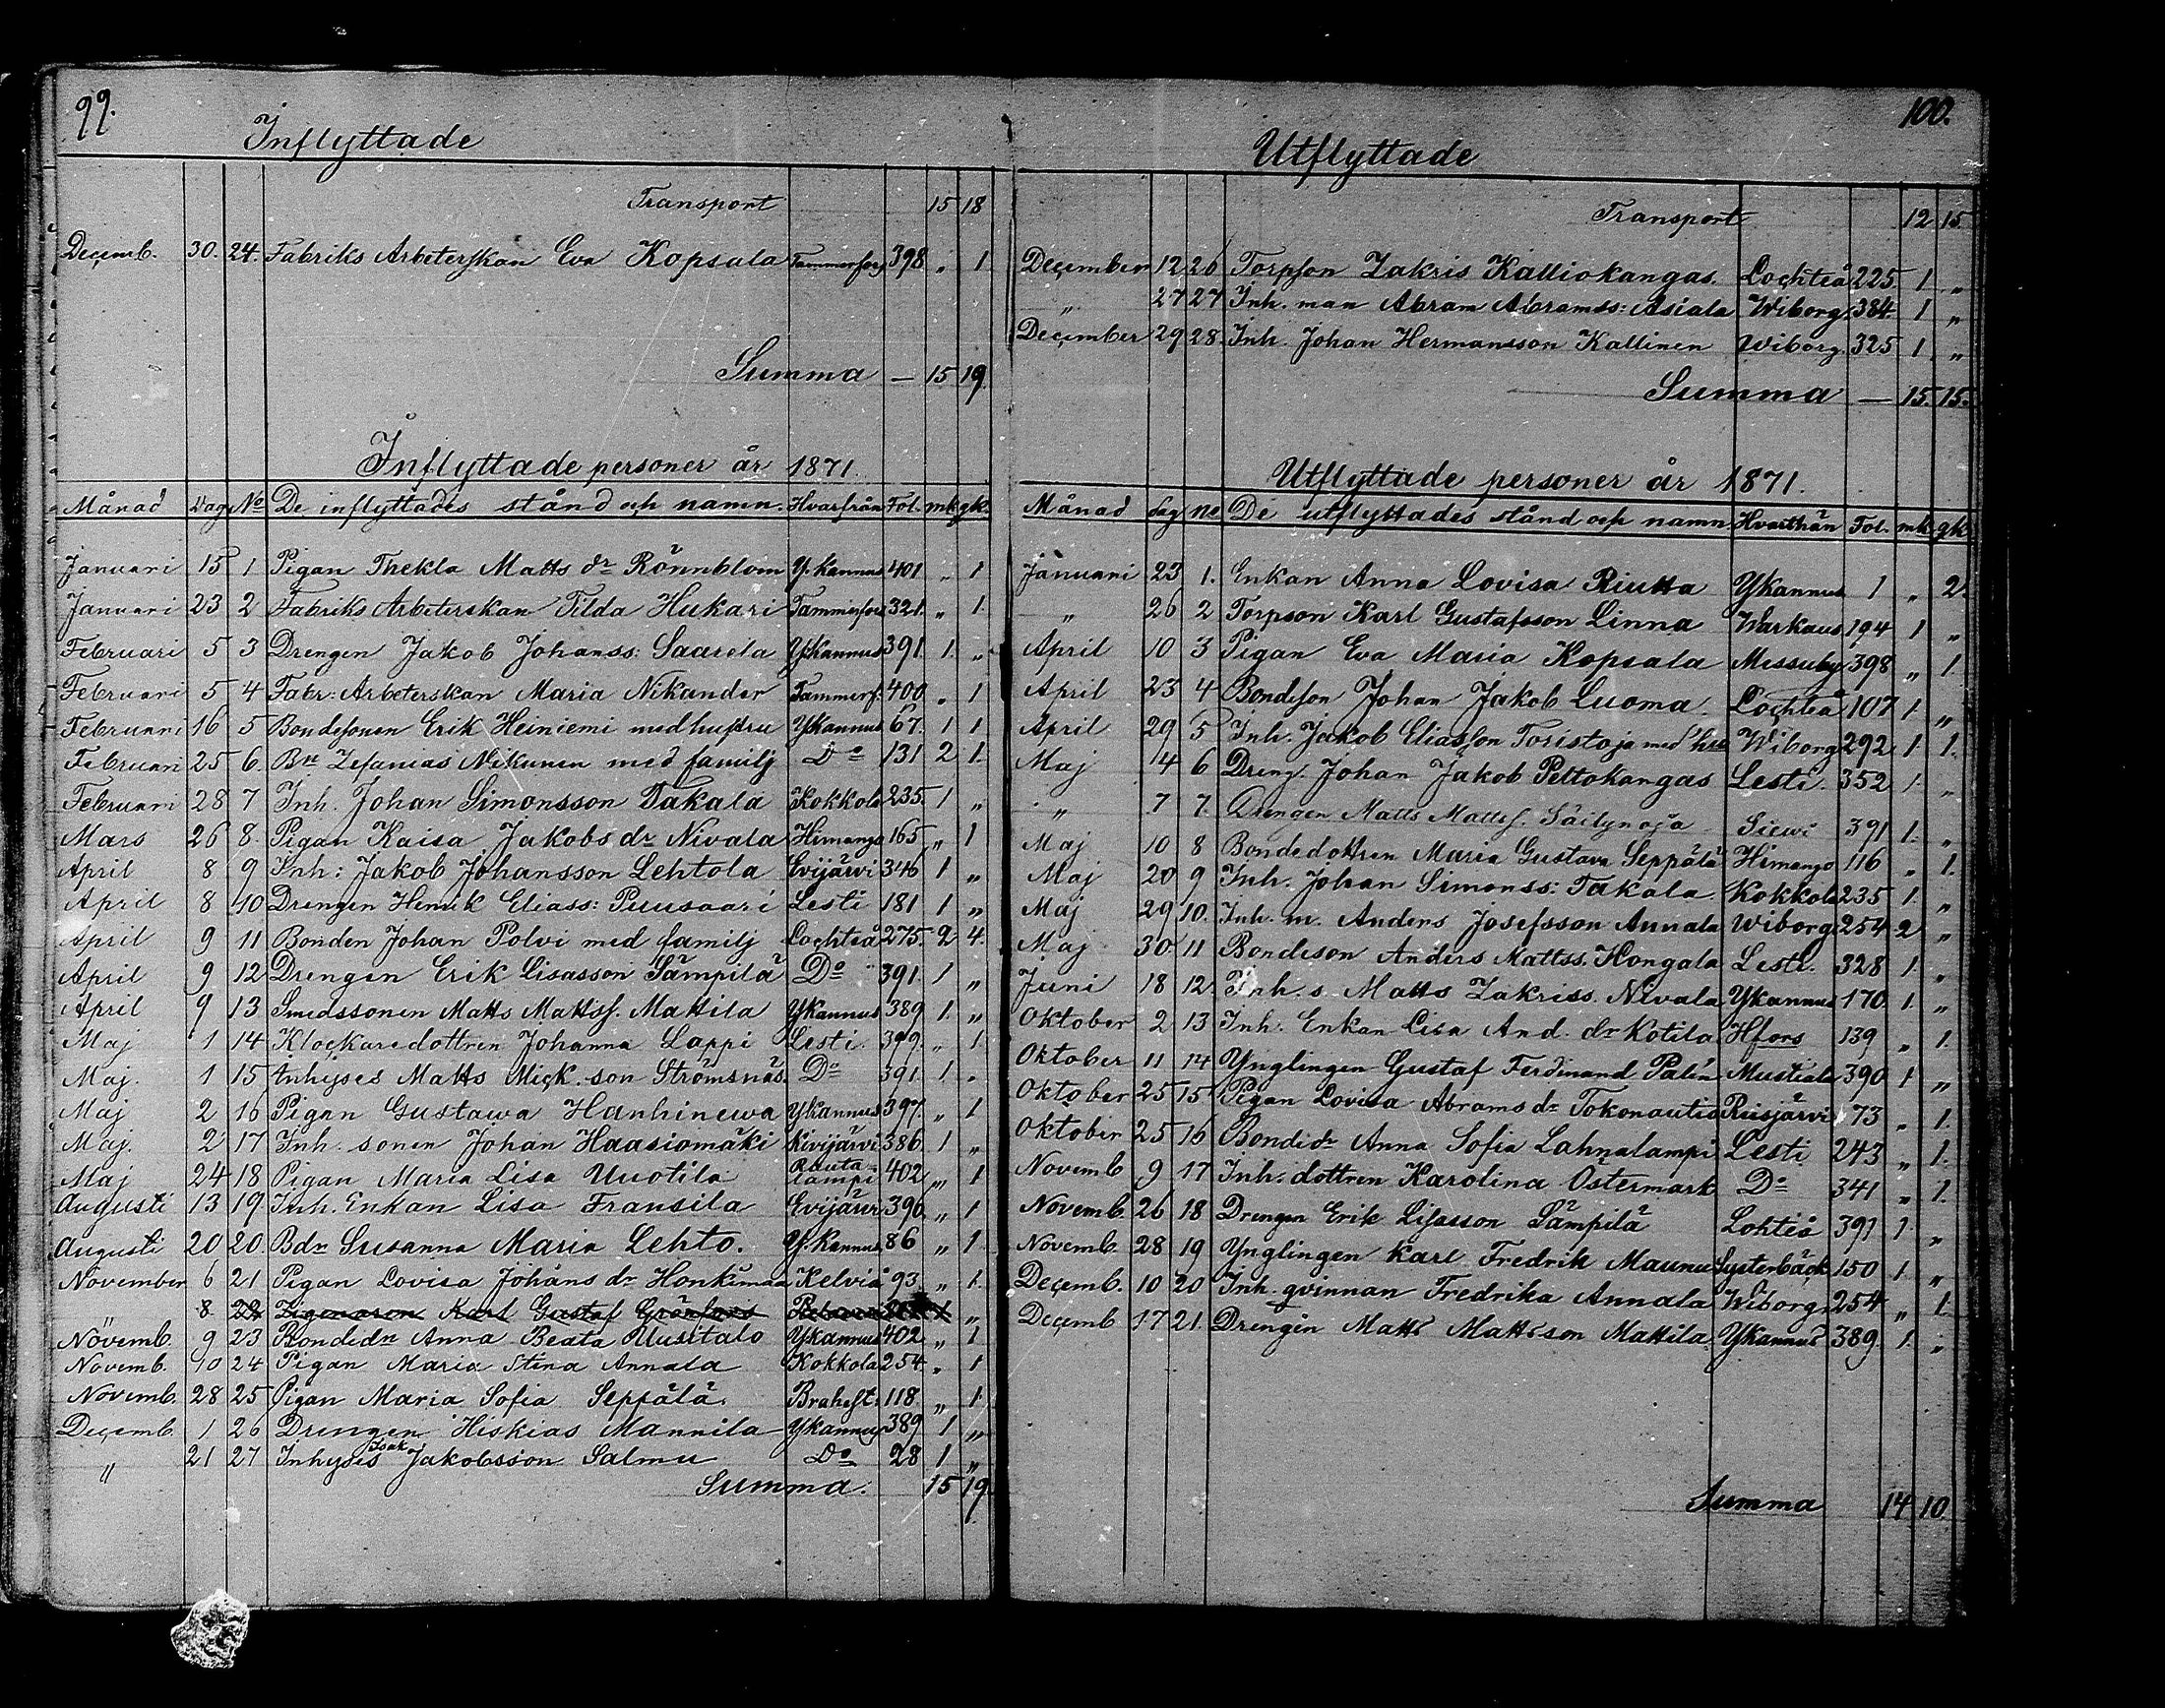 99.
Inflyttade
Transport 15 18
Decemb. 30. 24. Fabriks Arbeterskan Eva Kopsala Tammerfors 398 „ 1
Summa — 15 19.
Inflyttade personer år 1871.
Månad Dag No De inflyttades stånd och namn. Hvarfrån Fol. mk gk.
Januari 15 1 Pigan Thekla Matts dr Rönnblom Y. Kannus 401 „ 1
Januari 23 2 Fabriks Arbeterskan Tilda Hukari Tammerfors 321. „ 1.
Februari 5 3 Drengen Jakob Johanss: Saarela Ykannus 391. 1. „
Februari 5 4 Fabr: Arbeterskan Maria Nikander Tammerf. 400 „ 1
Februari 16 5 Bondesonen Erik Heiniemi med hustru Ykannus 67. 1 1
Februari 25 6. Bn Zefanias Nikunen med familj Do 131 2 1.
Februari 28 7 Inh. Johan Simonsson Takala Kokkola 235. 1 „
Mars 26 8. Pigan Kaisa Jakobs dr Nivala Himango 165 „ 1
April 8 9 Inh: Jakob Johansson Lehtola Evijärvi 346 1 „
April 8 10 Drengen Henrik Eliass: Puusaari Lesti 181 1 „
April 9 11 Bonden Johan Polvi med familj Lochteå 275. 2 4.
April 9 12 Drengen Erik Lisasson Sämpilä Do 391. 1 „
April 9 13 Smedssonen Matts Mattss. Mattila Ykannus 389 1. „
Maj 1 14 Klockaredottren Johanna Lappi Lesti. 399. „ 1
Maj. 1 15 Inhyses Matts Mick.son Strömsnäs. Do 391. 1. „
Maj 2 16 Pigan Gustawa Hanhinewa Ykannus 397. „ 1
Maj. 2 17 Inh. sonen Johan Haasiomäki Kivijärvi 386 1 „
Maj 24 18 Pigan Maria Lisa Uuotila Rautalampi 402 „ 1
Augusti 13 19. Inh. Enkan Lisa Fransila Evijärvi 396 „ 1
Augusti 20 20. Bdr Susanna Maria Lehto. Y. Kannus 86 „ 1
November 6 21 Pigan Lovisa Johans dr Honkimaa Kelviå 93. „ 1.
„ 8. 22 Karl Gustaf „
Novemb. 9 23 Bondedr Anna Beata Uusitalo Ykannus 402 „ 1
Novemb. 10 24 Pigan Maria Stina Annala Kokkola 254 „ 1
Novemb. 28 25 Pigan Maria Sofia Seppälä. Brahest. 118. „ 1.
Decemb. 1 26 Drengen Hiskias Mannila Ykannus 389 1 „
„ 21 27 Inhyses Isak Jakobsson Salmu Do 28 1 „
Summa. 15 19.
100.
Utflyttade
Transport 12 15.
December 12 26 Torpson Zakris Kalliokangas. Lochteå 225. 1 „
„ 27 27 Inh. man Abram Abramss: Asiala Wiborg 384 1 „
December 29 28. Inh. Johan Hermansson Kallinen Wiborg. 325 1. „
Summa — 15. 15.
Utflyttade personer år 1871.
Månad dag no De utflyttades stånd och namn Hvarthän Fol. mk gk
Januari 23 1. Enkan Anna Lovisa Riutta Ykannus 1 „ 2.
„ 26 2 Torpson Karl Gustafsson Linna Warkaus 194 1 „
April 10 3 Pigan Eva Maria Kopsala Messuby 398 „ 1.
April 23 4 Bondeson Johan Jakob Luoma Lochteå 107 1. „
April 29 5 Inh. Jakob Eliasson Toristoja med hru Wiborg 292 1. 1.
Maj 4 6 Dreng. Johan Jakob Peltokangas Lesti. 352 1. „
„ 7 7. Drengen Matts Mattss. Säilynoja Siewi 391 1. „
Maj 10 8 Bondedottren Maria Gustava Seppälä Himango 116 „ 1.
Maj 20 9 Inh. Johan Simonss: Takala Kokkola 235 1. „
Maj 29 10. Inh. m. Anders Josefsson Annala Wiborg 254 2 „
Maj 30. 11 Bondeson Anders Mattss. Hongala Lesti. 328 1. „
Juni 18 12. Inh. s. Matts Zakriss. Nivala Ykannus 170 1. „
Oktober 2 13 Inh. Enkan Lisa And. dr Kotila Hfors 139 „ 1.
Oktober 11 14 Ynglingen Gustaf Ferdinand Palén Mustiala 390 1 „
Oktober 25 15 Pigan Lovisa Abrams dr Tokonautio Reisjärvi 73 „ 1.
Oktober 25 16 Bondedr Anna Sofia Lahnalampi Lesti 243 „ 1.
Novemb 9 17 Inh. dottren Karolina Östermark Do 341 „ 1.
Novemb 26 18 Drengen Erik Lisasson Sämpilä Lohteå 391 1 „
Novemb. 28 19 Ynglingen Karl Fredrik Maunu Systerbäck 150 1. „
Decemb. 10 20 Inh. qvinnan Fredrika Annala Wiborg 254 „ 1.
Decemb 17 21. Drengen Matts Mattsson Mattila. Ykannus 389. 1. „
Summa 14 10